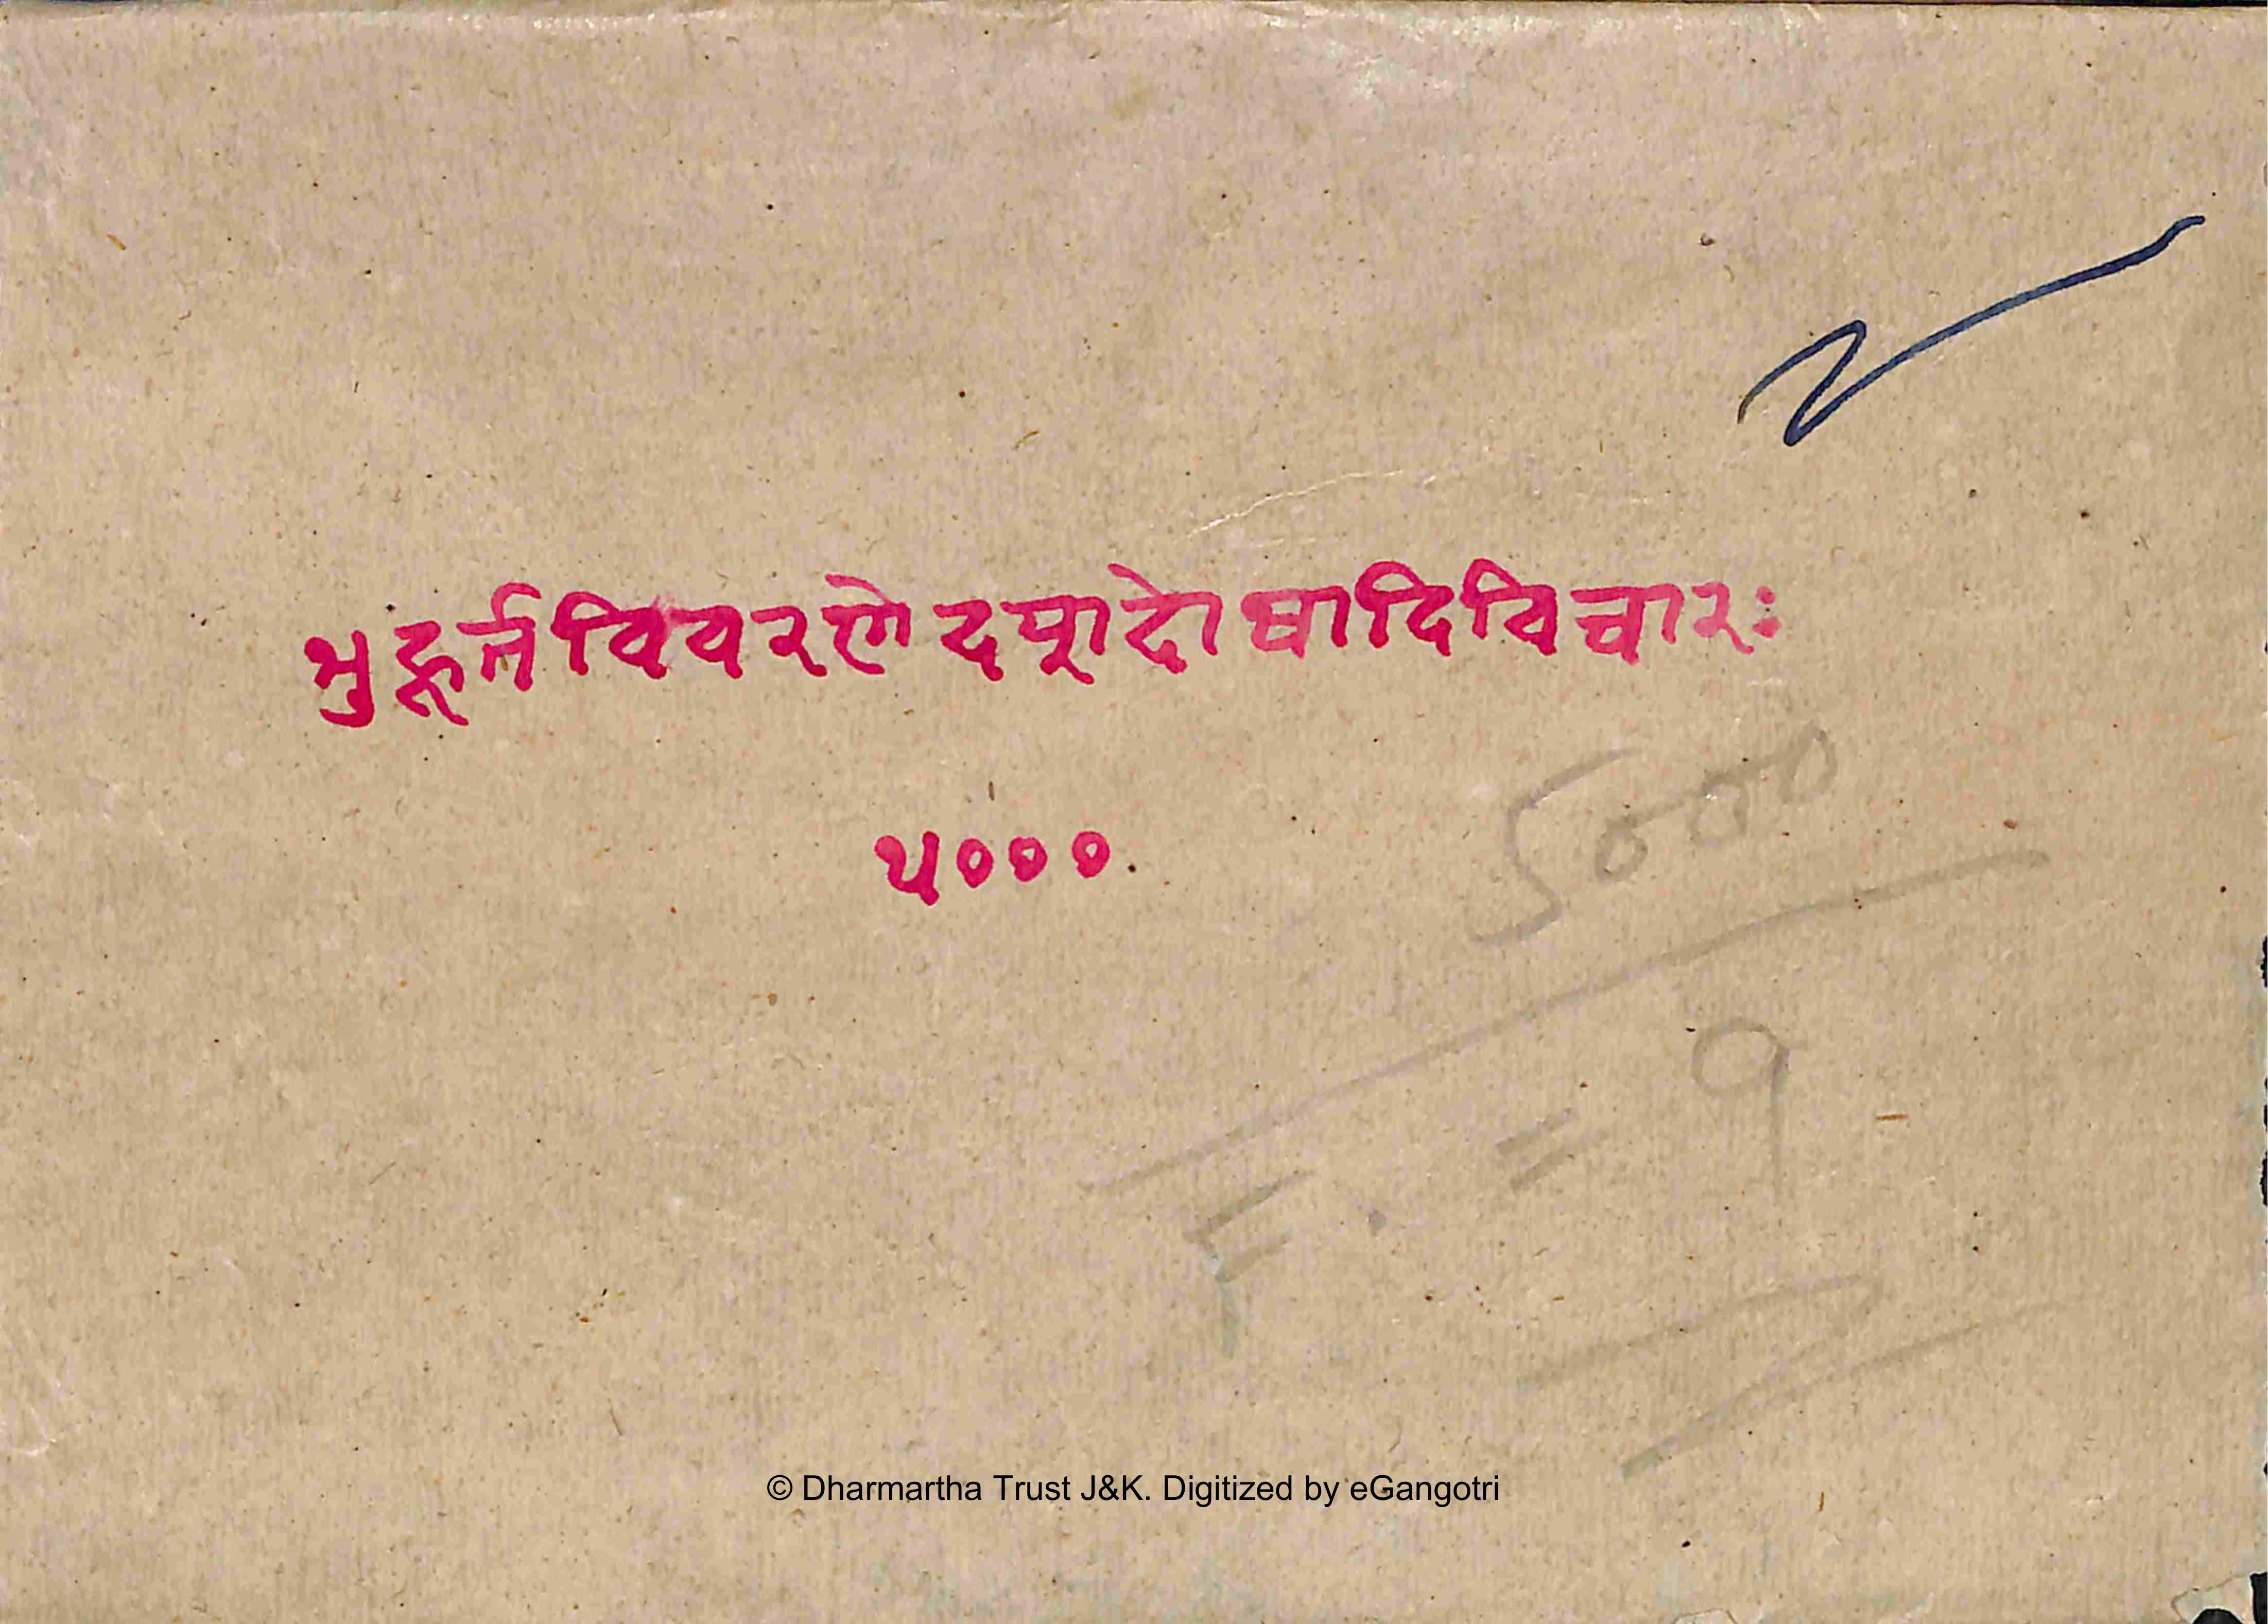 मुहूर्तविवरणे दशादोषादिविचारः
५०००
5000
F. = 9
© Dharmartha Trust J&K. Digitized by eGangotri